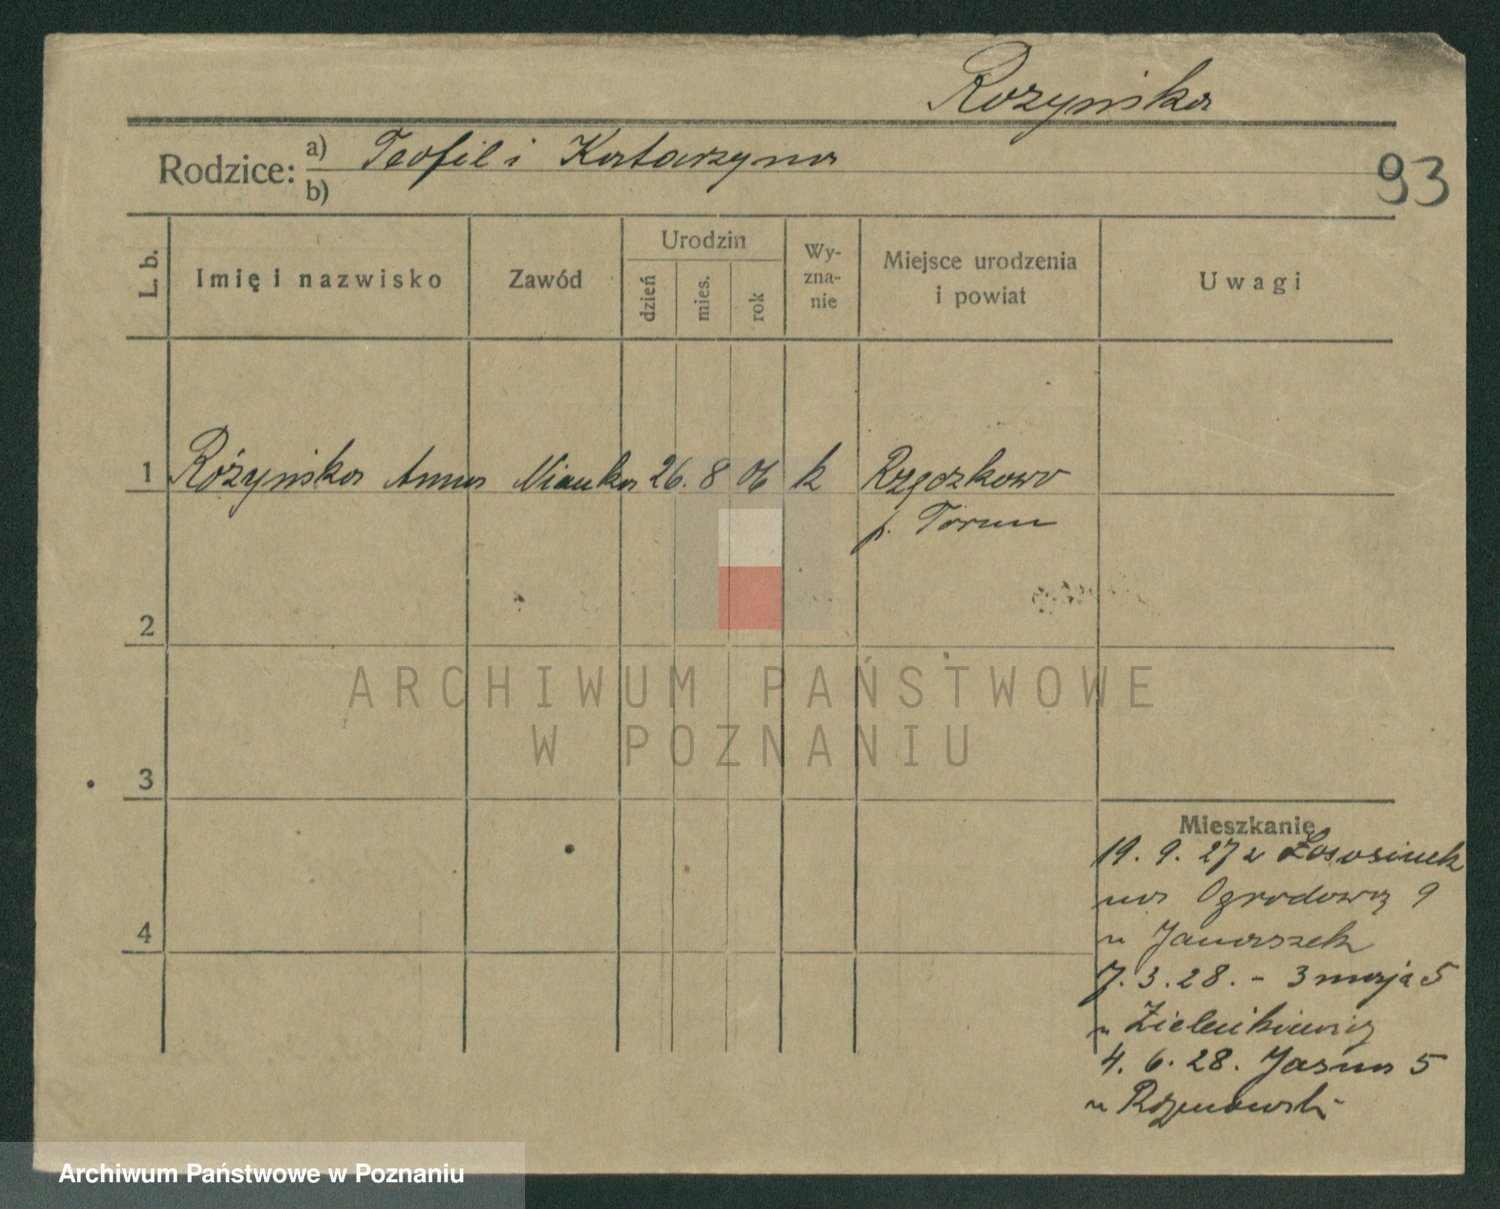 Rożyńska
Rodzice: a) Teofil i Katarzyna
b)
93
L. b. Imię i nazwisko Zawód Urodzin dzień mies. rok Wy-zna-nie Miejsce urodzenia i powiat Uwagi
1 Różyńska Anna Nianka 26. 8 06 k Rzęczkowo
p. Toruń
2
ARCHIWUM PAŃSTWOWE
W POZNANIU
3
Mieszkanie
19. 9. 27 z Łososinek
na Ogrodową 9
4
u Janaszek
7. 3. 28. - 3 maja 5
u
4. 6. 28. Jasna 5
u
Archiwum Państwowe w Poznaniu